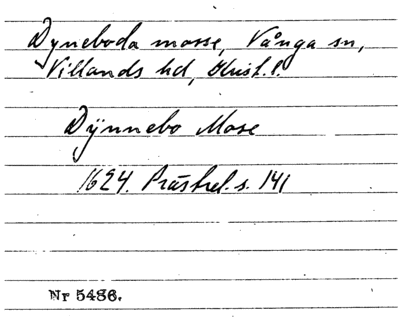 Dyneboda mosse, Vånga sn,
Villands hd, Krist. l.
Dÿnnebo Mose
1624. Prästrel. s. 141
Nr 5486.